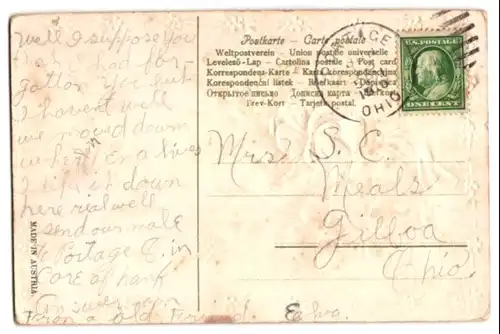 Well I suppose you
that I had for-
gotten you but
I havent well
we moved down
where Era lives
I like it down
here real well
send our male
to Portage O. in
Care of hank
Answer soon
From a Old Friend. Edna.
MADE IN AUSTRIA
Postkarte – Carte postale
Weltpostverein – Union postale universelle
Levelező-Lap – Cartolina postale – Post card
Korrespondenz-Karte – Karta korespondencyjna
Korespondenční lístek – Briefkaart – Brefkort
Открытое письмо – Дописна карта
Brev-Kort – Tarjeta postal.
OHIO
U.S. POSTAGE
ONE CENT
Mrs S. C.
Meals
Gilboa
Ohio.